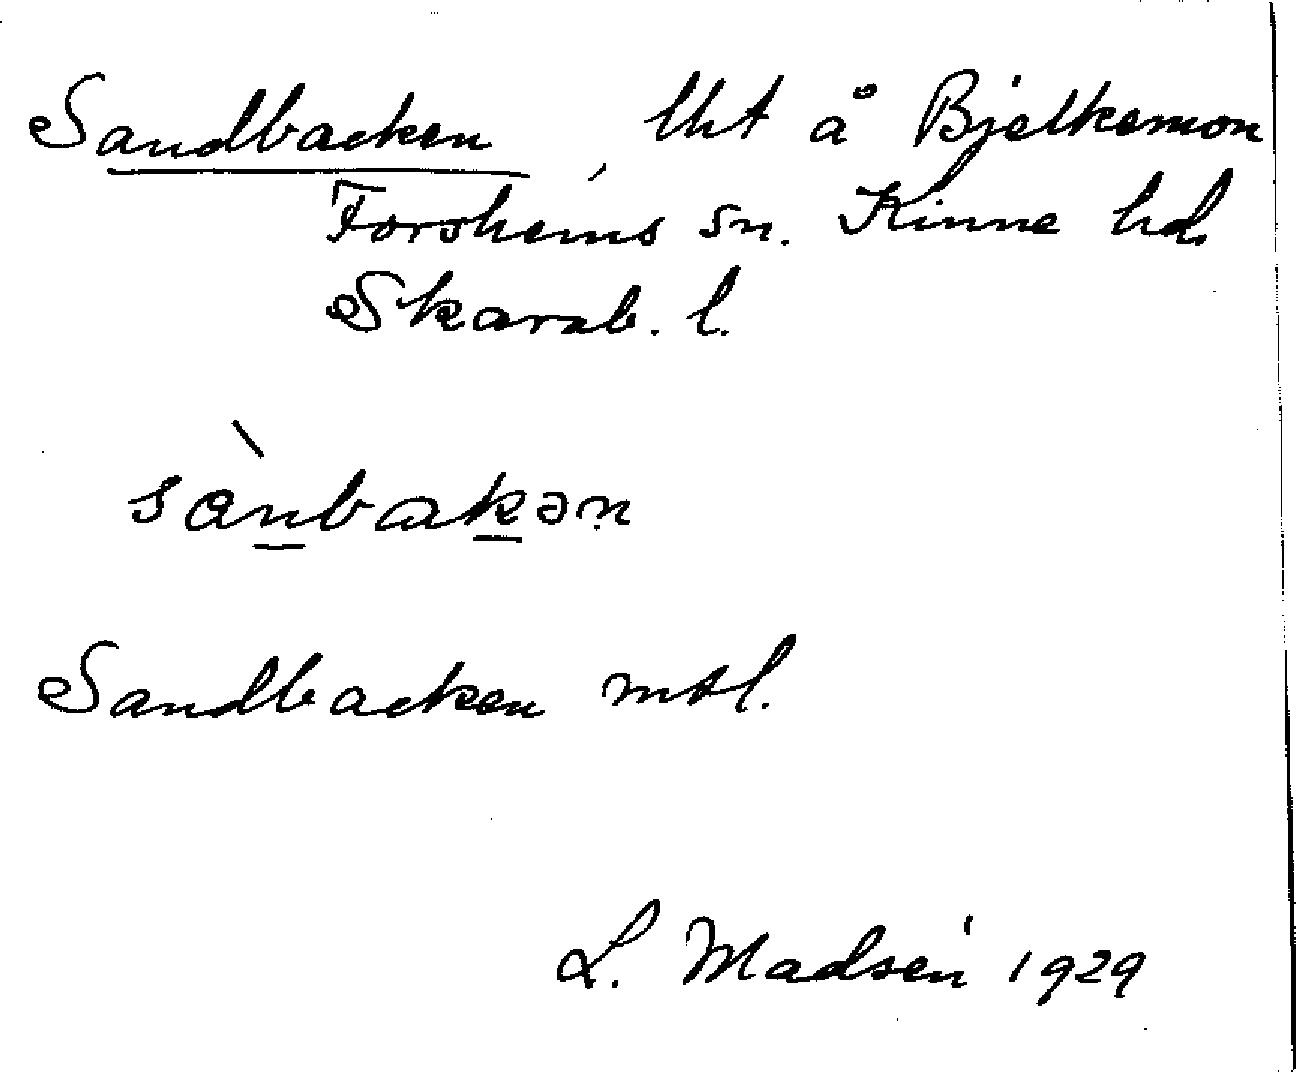 Sandbacken, lht å Bjelkemon
Forshems sn. Kinne hd.
Skarab. l.
sànbakən
Sandbacken mtl.
L. Madsén 1929